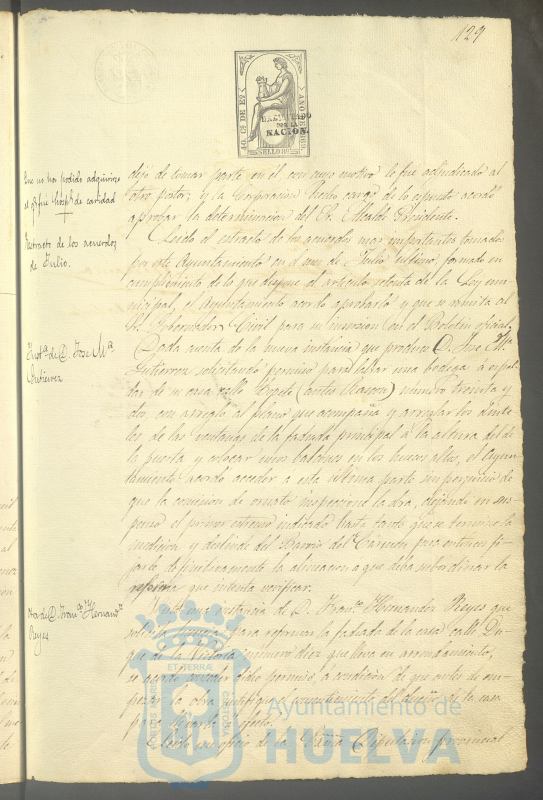 129
10. Cs. DE Eo.
AÑO
HABILITADO
POR LA
NACION.
SELLO 10º
Que no han podido adquirirse
de caridad
Extracto de los acuerdos
de Julio.
Instª. de D. Jose Mª
Gutierrez
Ynsta. de D. Franco. Hernandz
Reyes
dejo de tomar parte en él con cuyo motivo le fue adjudicado al
otro postor; y la Corporacion hecho cargo de lo espuesto acordó
aprobar la determinacion del Sr. Alcalde Presidente.
Leido el estracto de los acuerdos mas importantes tomados
por este Ayuntamiento en el mes de Julio ultimo, formado en
cumplimiento de lo que dispone el articulo setenta de la Ley mu-
nicipal, el Ayuntamiento acordó aprobarlo y que se remita al
Sr. Gobernador Civil para su insercion en el Boletin oficial.
Dada cuenta de la nueva instancia que produce D. José Mª
Gutierrez solicitando permiso para labrar una bodega á espal-
das de su casa calle (antes Rascon) número treinta y
dos, con arreglo al plano que acompaña y arreglar los dinte
les de las ventanas de la fachada principal á la altura del de
la puerta y colocar unos balcones en los huecos altos, el Ayun-
tamiento acordó acceder a esta ultima parte sin perjuicio de
que la comision de ornato inspeccione la obra, dejando en sus-
penso el primer estremo indicado hasta tanto que se termine la
medicion y deslinde del Barrio del Carmen, pues entonces fi-
jarse definitivamente la alineacion a que deba subordinar la
reforma que intenta verificar.
Vista una instancia de D. Franco. Hernandez Reyes que
solicita licencia para reformar la fachada de la casa calle Du-
que de la Victoria número diez que lleva en arrendamiento,
se acordó conceder dicho permiso á condicion de que antes de em-
pezar la obra justifique el consentimiento del dueño de la casa
para llevarla á efecto.
Leido un oficio de la Excma. Diputacion provincial
ET TERRÆ
Ayuntamiento de
HUELVA